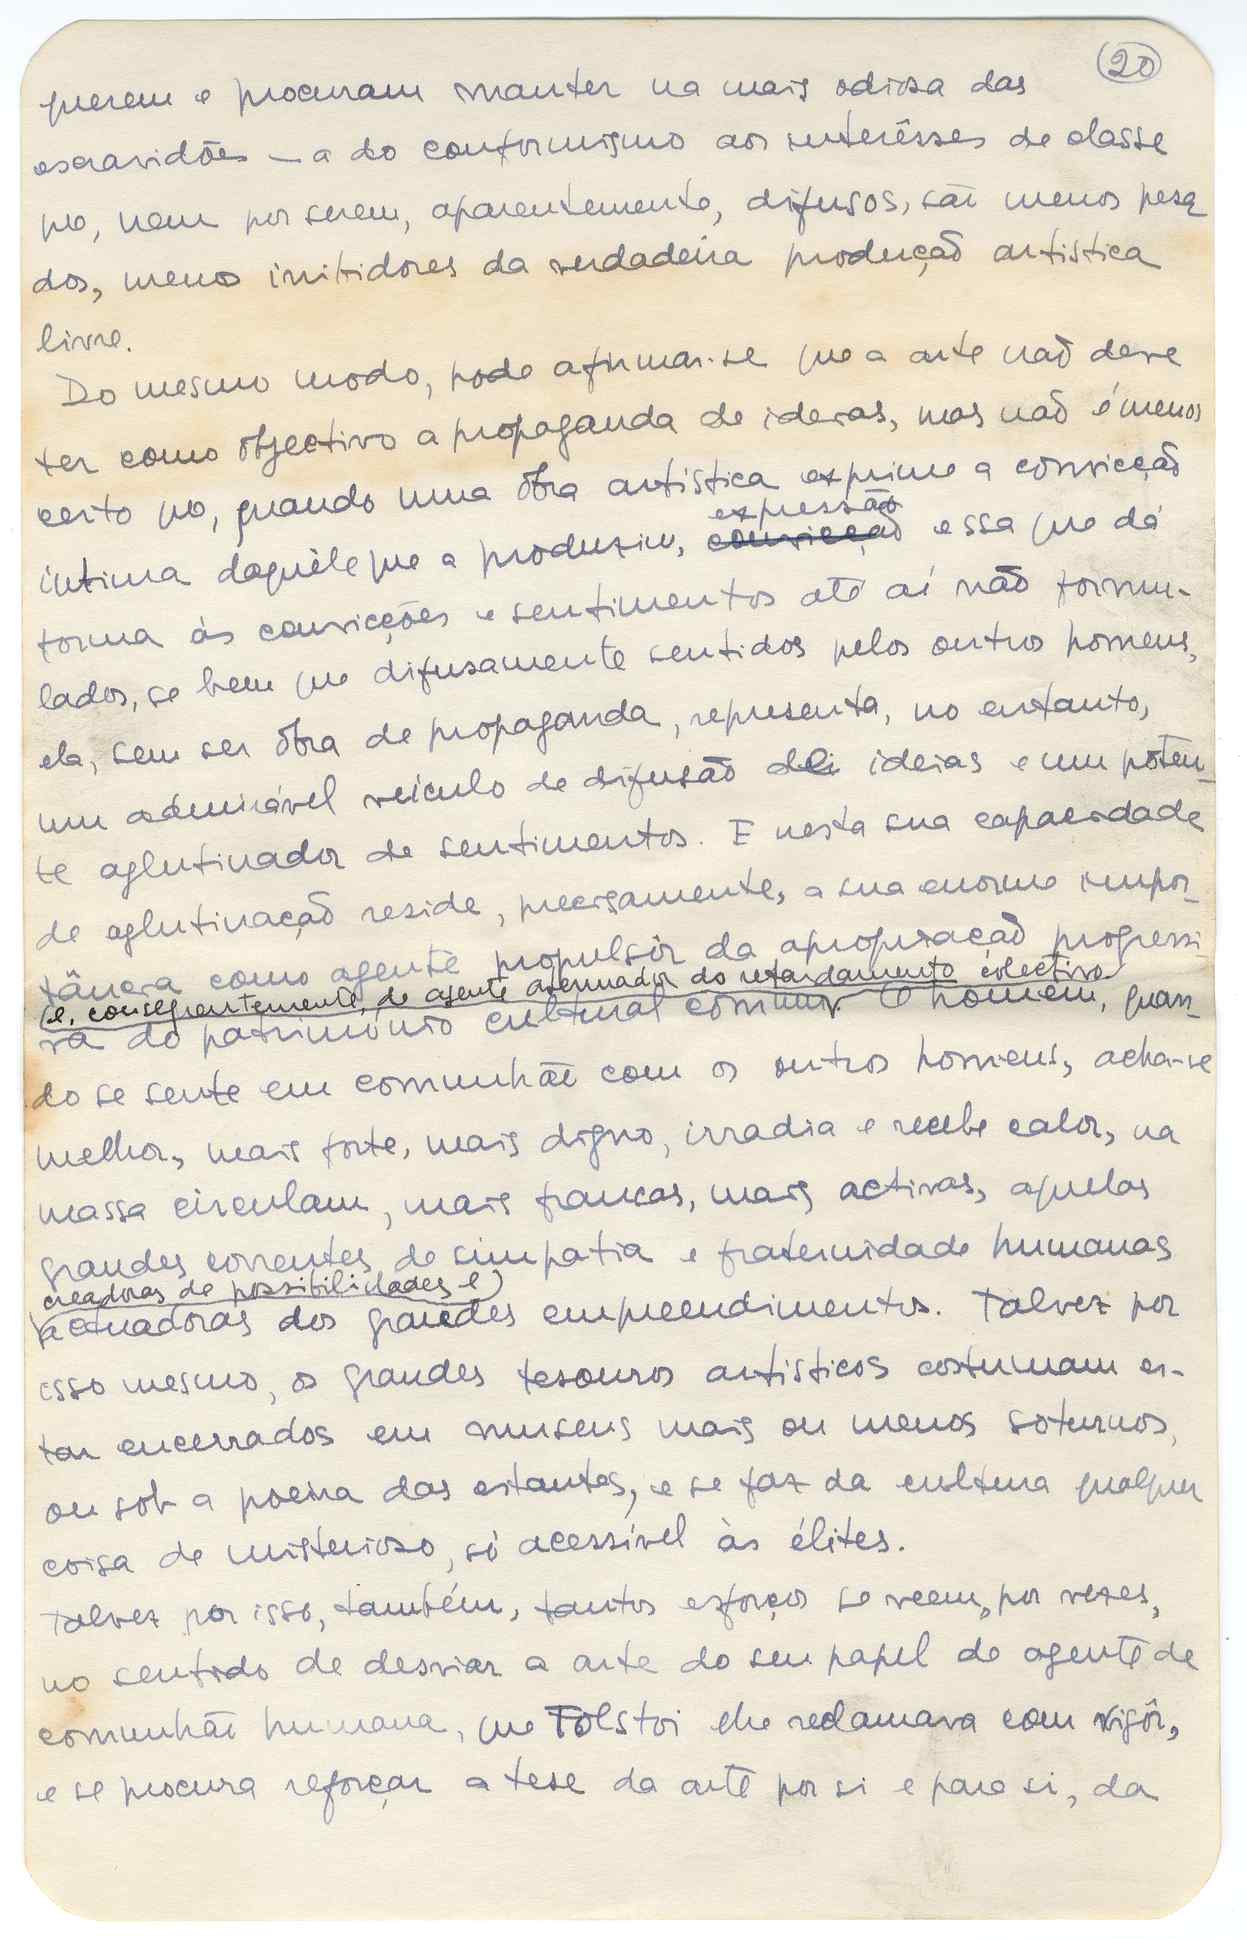 20
querem e procuram manter na mais odiosa das
escravidões — a do conformismo aos interêsses de classe
que, nem por serem, aparentemente, difusos, são menos pesa
dos, menos inibidores da verdadeira produção artistica
livre.
Do mesmo modo, pode afirmar-se que a arte não deve
ter como objectivo a propaganda de ideias, mas não é menos
certo que, quando uma obra artística exprime a convicção
expressão
íntima daquêle que a produziu, convicção essa que dá
forma às convicções e sentimentos até aí não formu-
lados, se bem que difusamente sentidos pelos outros homens,
ela, sem ser obra de propaganda, representa, no entanto,
um admirável veículo de difusão de ideias e um poten-
te aglutinador de sentimentos. E nesta sua capacidade
de aglutinação reside, precisamente, a sua enorme impor-
tância como agente propulsôr da apropriação progressi
(e, conseqüentemente, de agente atenuador do retardamento colectivo)
va do património cultural comum. O homem, quan-
do se sente em comunhão com os outros homens, acha-se
melhor, mais forte, mais digno, irradia e recebe calor, na
massa circulam, mais francas, mais activas, aquelas
grandes correntes de simpatia e fraternidade humanas
creadoras de possibilidades e)
actuadoras dos grandes empreendimentos. Talvez por
isso mesmo, os grandes tesouros artísticos costumam es-
tar encerrados em museus mais ou menos soturnos,
ou sob a poeira das estantes, e se faz da cultura qualquer
coisa de misterioso, só acessível às élites.
Talvez por isso, também, tantos esforços se veem, por vezes,
no sentido de desviar a arte do seu papel de agente de
comunhão humana, que Tolstoi lhe reclamava com vigôr,
e se procura reforçar a tese da arte por si e para si, da